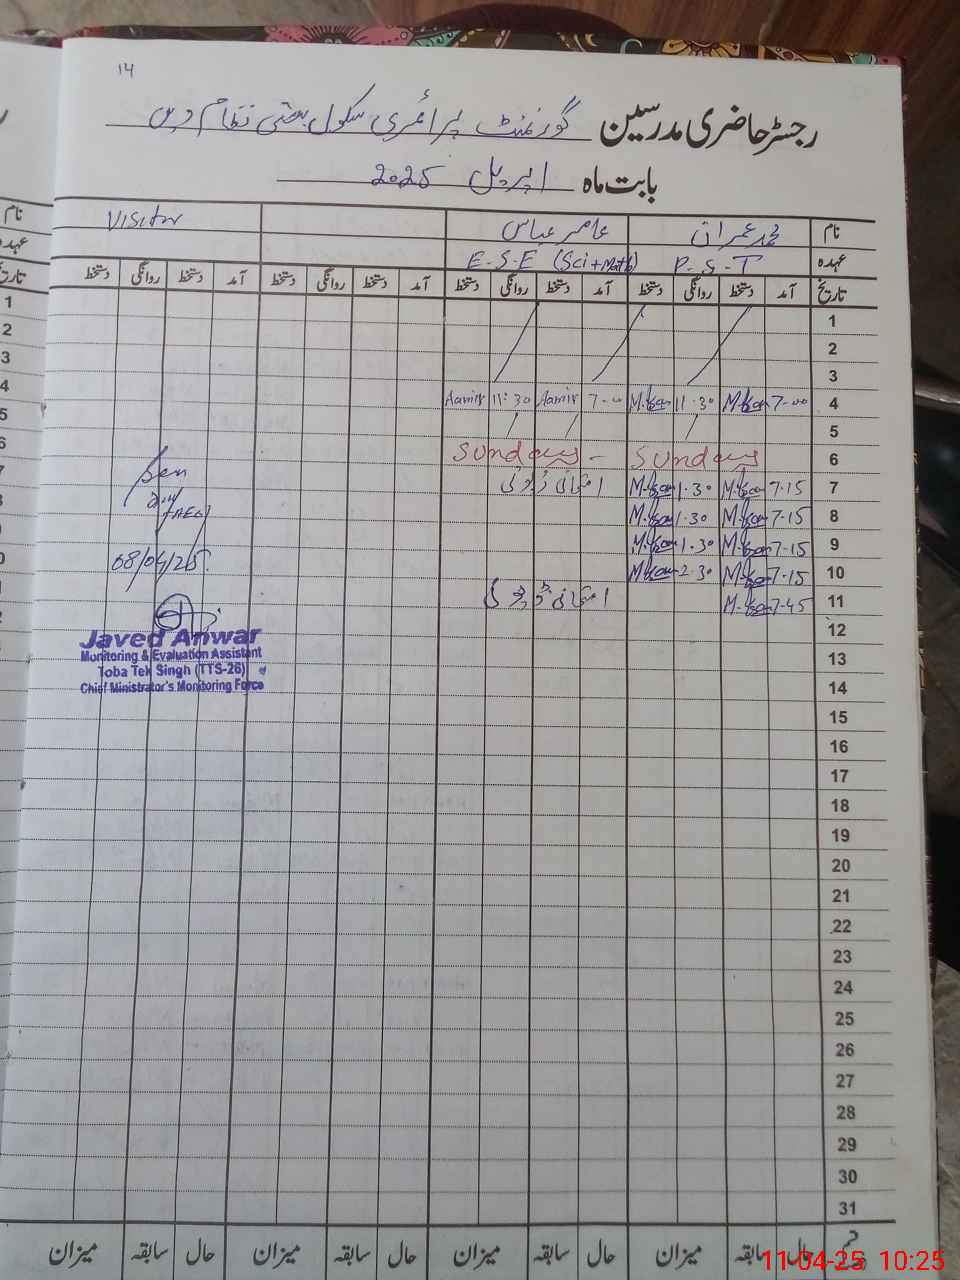 14
رجسٹر حاضری مدرسین گورنمنٹ پرائمری سکول بستی نظام دین
بابت ماہ اپریل 2025
نام محمد عمران عامر عباس Visitor
عہدہ P.S.T E-S-E (Sci+Math)
تاریخ آمد دستخط روانگی دستخط آمد دستخط روانگی دستخط آمد دستخط روانگی دستخط آمد دستخط روانگی دستخط
1
2
3
4 7-00 11.30 7-00 Aamir 11:30 Aamir
5
6 Sunday Sunday
7 7-15 1.30 امتحانی ڈیوٹی
8 7-15 1.30
9 7-15 1.30
10 7-15 2.30
11 7-45 امتحانی ڈیوٹی
12
13
14
15
16
17
18
19
20
21
22
23
24
25
26
27
28
29
30
31
Seen
08/04/25.
Javed Anwar
Monitoring & Evaluation Assistant
Toba Tek Singh (TTS-26)
Chief Ministrator's Monitoring Force
حال سابقہ میزان حال سابقہ میزان حال سابقہ میزان حال سابقہ میزان
11-04-25 10:25